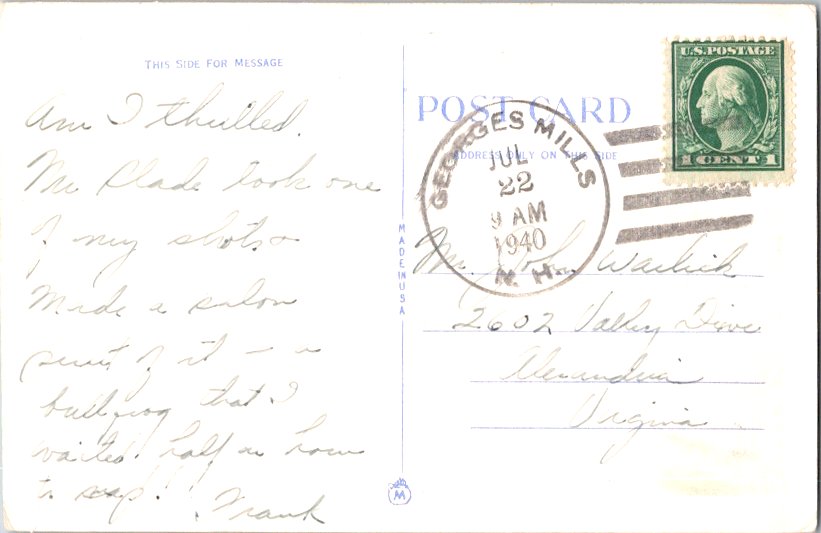 THIS SIDE FOR MESSAGE
Am I thrilled.
Mr. Slade took one
of my shots &
Made a salon
print of it — a
bullfrog that I
waited half an hour
to snap!
Frank
MADE IN USA
M
POST CARD
ADDRESS ONLY ON THIS SIDE
GEORGES MILLS
JUL
22
9 AM
1940
N. H.
U.S. POSTAGE
1 CENT 1
Mr. John
2602 Valley Drive
Alexandria
Virginia